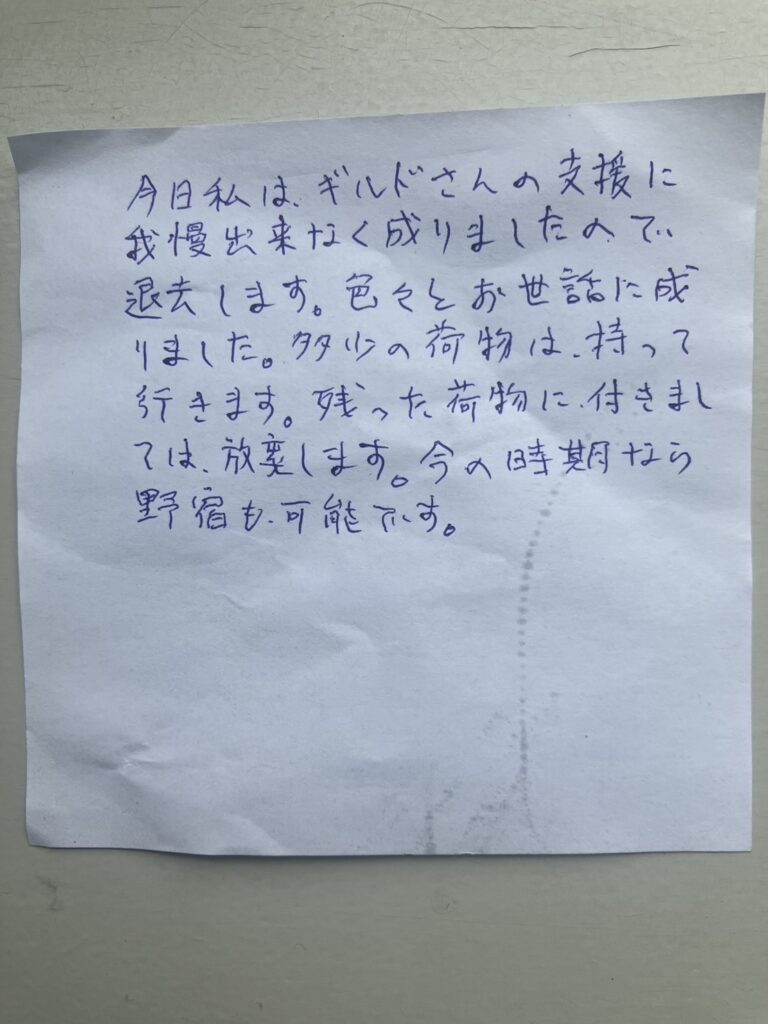 今日私は、ギルドさんの支援に
我慢出来なく成りましたので
退去します。色々とお世話に成
りました。多少の荷物は、持って
行きます。残った荷物に、付きまし
ては、放棄します。今の時期なら
野宿も、可能です。